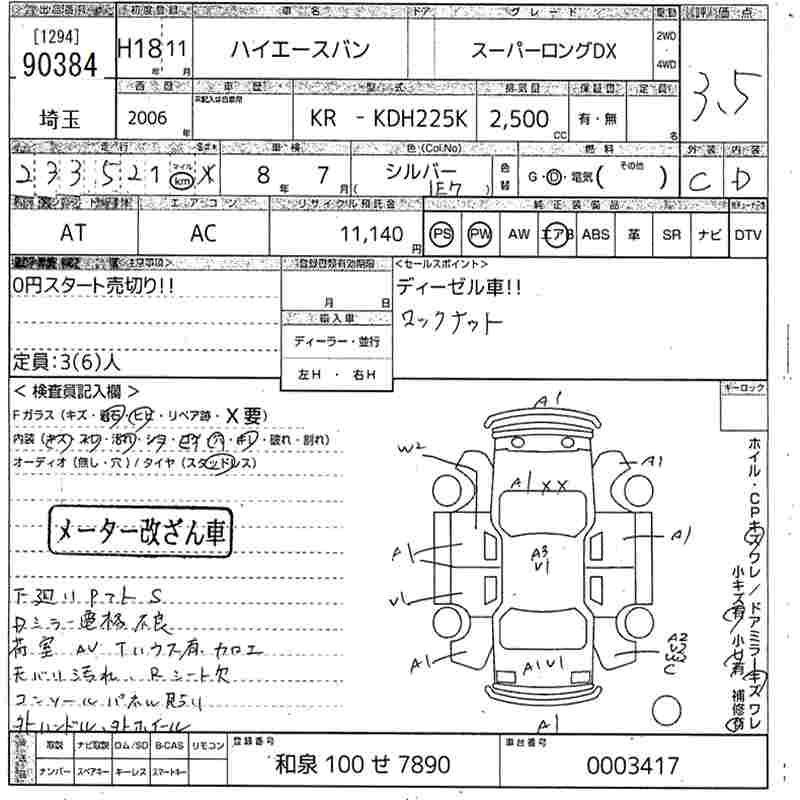 出品番号 初度登録 車名 ドア グレード 駆動 評価点
[1294]
90384
H18 11
年 月
ハイエースバン
スーパーロングDX
2WD
4WD
3.5
西暦 車歴 型式 排気量 保証書 定員
埼玉
2006
年
KR - KDH225K
2,500
CC
有・無
名
走行 車検 色(Col.No) 燃料 外装 内装
233521
マイル
km
8年 7月
シルバー
1E7
色替
G・D・電気( その他 )
C D
エアコン リサイクル預託金 純正装備品
AT
AC
11,140
円
PS PW AW エアB ABS 革 SR ナビ DTV
<注意事項>
登録書類有効期限
<セールスポイント>
0円スタート売切り!!
月 日
ディーゼル車!!
ロックナット
輸入車
ディーラー・並行
左H ・ 右H
定員:3(6)人
< 検査員記入欄 >
Fガラス (キズ・飛石・ヒビ・リペア跡・X要)
内装 (キズ・ヌレ・汚れ・シミ・コゲ・穴・キレ・破れ・割れ)
オーディオ (無し・穴) / タイヤ (スタッドレス)
キーロック
メーター改ざん車
下廻り Pマト S
Dミラー電格不良
荷室 AV Tハウス有 カロエ
天バリ汚れ、Rシート欠
コンソールパネル
外ハンドル、外ホイール
A1
W2
A1
A1XX
A1
A1
A3
V1
V1
A1
A1V1
A2
V2
W2
C
A1
ホイル・CPキズワレ/ドアミラーキズワレ
小キズ有 小U有 補修有
取説 ナビ取説 ロム/SD B-CAS リモコン
ナンバー スペアキー キーレス スマートキー
登録番号
和泉 100 せ 7890
車台番号
0003417